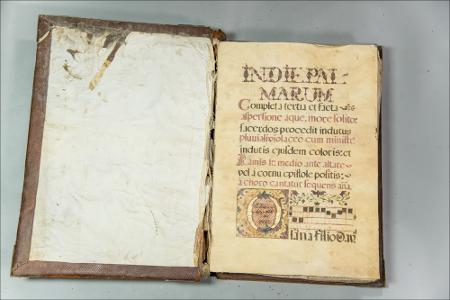 IN DIE PAL-
MARUM
Completa tertia et facta
aspersione aque, more solito:
sacerdos procedit indutus
pluviali violaceo cum ministr
indutis ejusdem coloris: et
Ramis in medio ante altare
vel a cornu epistole positis:
a choro cantatur sequens aña.
sanna filio Davi